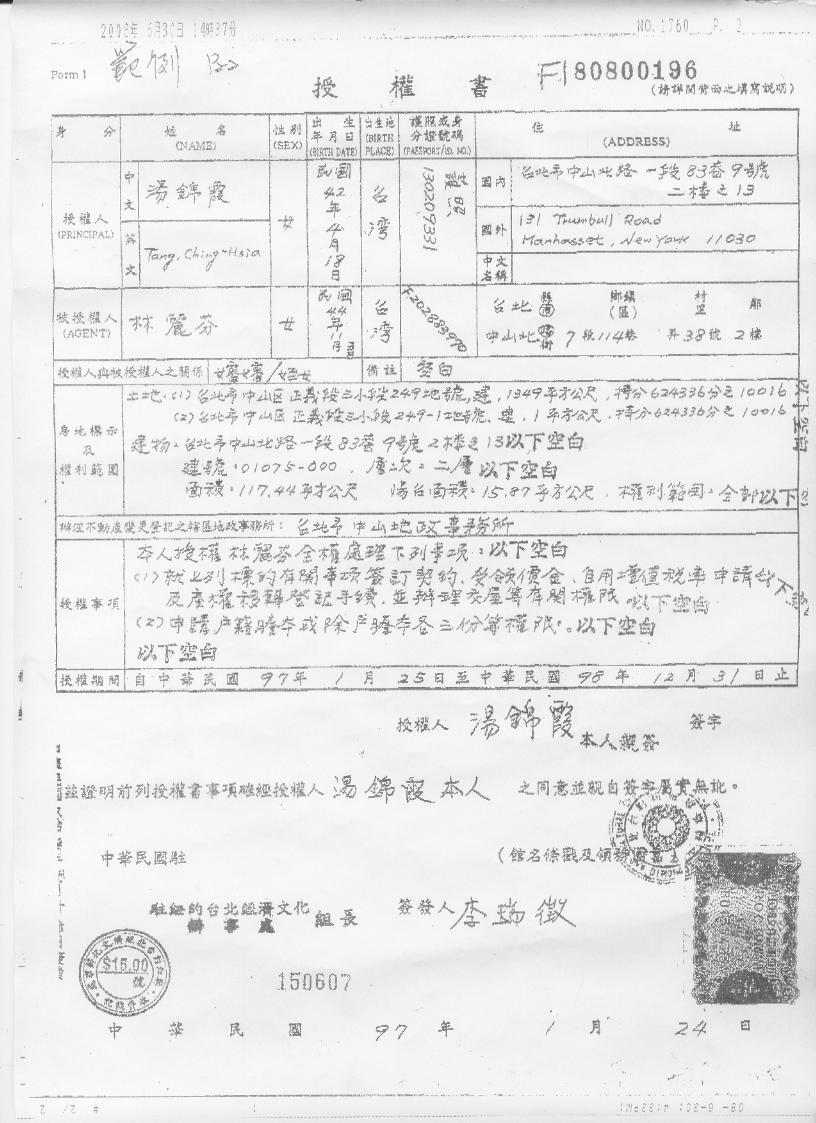 2008年 6月30日 14時37分
NO. 1760 P. 2
Form 1
範例
授權書
F180800196
(請詳閱背面之填寫說明)
身分
姓名
(NAME)
性別
(SEX)
出生
年月日
(BIRTH DATE)
出生地
(BIRTH
PLACE)
護照或身
分證號碼
(PASSPORT/ID. NO.)
住址
(ADDRESS)
授權人
(PRINCIPAL)
中文
湯錦霞
英文
Tang, Ching-Hsia
女
民國42年4月18日
台湾
護照
130209331
國內
台北市中山北路一段83巷9号號
二樓之13
國外
131 Trumbull Road
Manhasset, New York 11030
中文
名稱
被授權人
(AGENT)
林麗芬
女
民國44年11月
台湾
F202883970
台北 縣市 鄉鎮(區) 村里 鄰
中山北 路街 7段114巷 弄38號 2樓
授權人與被授權人之關係
備註
空白
房地標示
及
權利範圍
土地:(1)台北市中山区正義段三小段249地號,建,1349平方公尺,持分624336分之10016
(2)台北市中山区正義段三小段249-1地號,建,1平方公尺,持分624336分之10016
以下空白
建物:台北市中山北路一段83巷9號2樓之13以下空白
建號:01075-000,層次:二層 以下空白
面積:117.44平方公尺 陽台面積:15.87平方公尺,權利範囲:全部以下
辦理不動產變更登記之轄區地政事務所:台北市中山地政事務所
授權事項
本人授權林麗芬全權處理下列事項:以下空白
(1)就上列標的有関事項簽訂契約、受領價金、自用增值税率申請
及產權移轉登記手續,並辦理交屋等有関權限 以下空白
(2)申請戶籍謄本或除戶謄本各三份等權限。以下空白
以下空白
授權期間
自中華民國 97年 1月 25日至中華民國 98年 12月 31日止
授權人 湯錦霞 簽字
本人親簽
茲證明前列授權書事項確經授權人 湯錦霞本人 之同意並親自簽字屬實無訛。
中華民國駐
(館名條戳及領務
駐紐約台北經濟文化
辦事處
組長
簽發人 李瑞徵
$15.00
號
150607
中華民國 97年 1月 24日
# 2/ 2